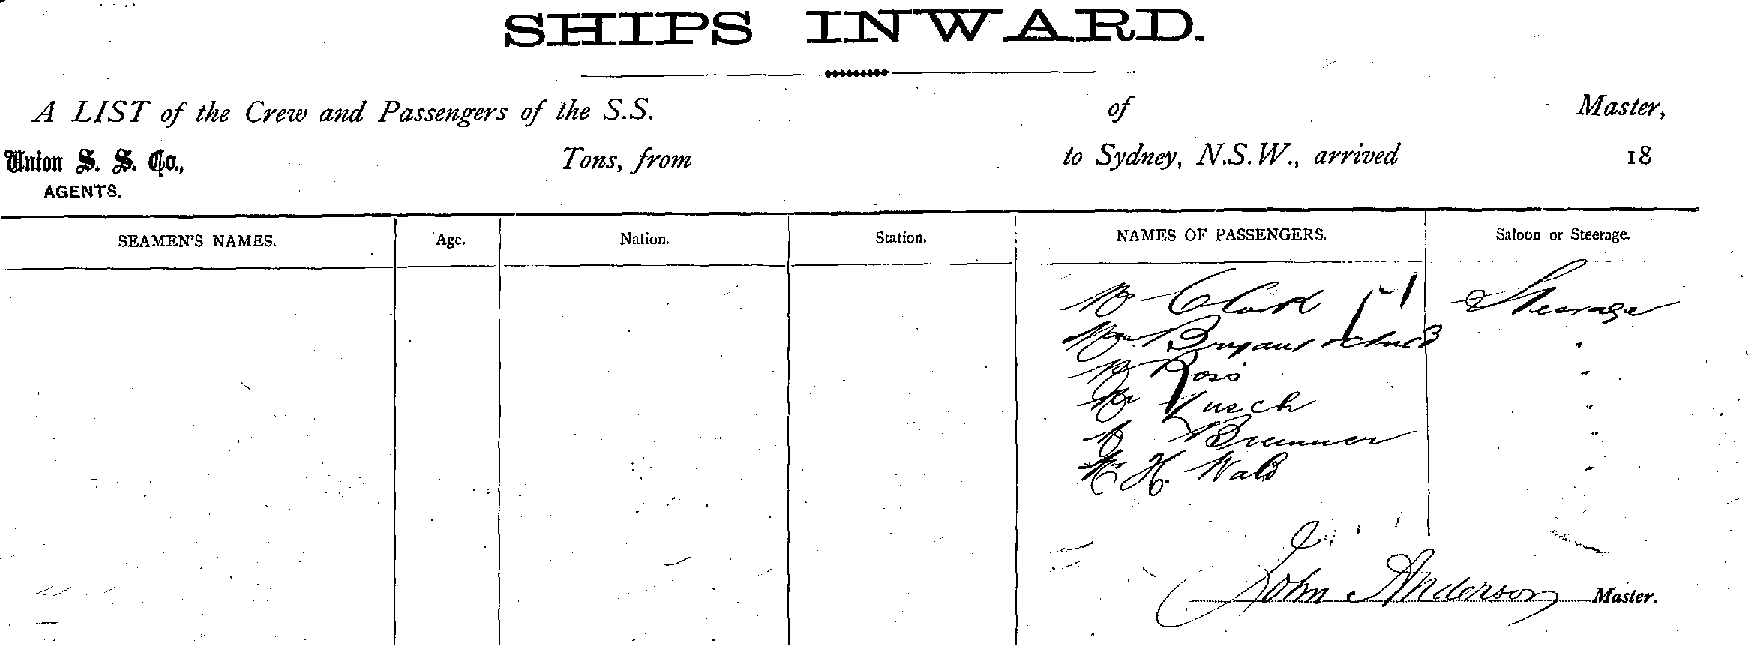 SHIPS INWARD.
A LIST of the Crew and Passengers of the S.S. of Master,
Union S. S. Co., Tons, from to Sydney, N.S.W., arrived 18
AGENTS.
SEAMEN'S NAMES. Age. Nation. Station. NAMES OF PASSENGERS. Saloon or Steerage.
Mr Clark Steerage
Mrs Bryant & child "
Mr Ross "
Mr Kusch "
Mr Bremner "
Mr H. Wald "
John Anderson Master.